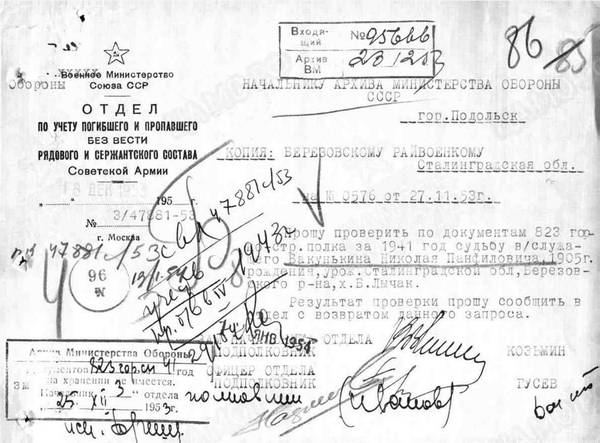 Входя-
щий №95666
Архив
ВМ 23/XII 53
86
85
Военное Министерство
Обороны Союза ССР
ОТДЕЛ
ПО УЧЕТУ ПОГИБШЕГО И ПРОПАВШЕГО
БЕЗ ВЕСТИ
РЯДОВОГО И СЕРЖАНТСКОГО СОСТАВА
Советской Армии
195
№ 3/47881-53
г. Москва
НАЧАЛЬНИКУ АРХИВА МИНИСТЕРСТВА ОБОРОНЫ
СССР
гор.Подольск
КОПИЯ: БЕРЕЗОВСКОМУ РАЙВОЕНКОМУ
Сталинградская обл.
на № 0576 от 27.11.53г.
Прошу проверить по документам 823 гор
стр.полка за 1941 год судьбу в/служа-
щего Вакунькина Николая Панфиловича,1905г.
рождения,урож.Сталинградской обл,Березов-
ского р-на,х.Б.Лычак.
Результат проверки прошу сообщить в
отдел с возвратом данного запроса.
47881с/53
47881/53с
96
IV
НАЧАЛЬНИК ОТДЕЛА
ПОДПОЛКОВНИК КОЗЬМИН
ОФИЦЕР ОТДЕЛА
ПОДПОЛКОВНИК ГУСЕВ
ЯНВ 1954
Архив Министерства Обороны
документов 823 гор.сп 41 год
на хранении не имеется.
Начальник 3 отдела
25 XII 1953г.
полковник
(Иванов)